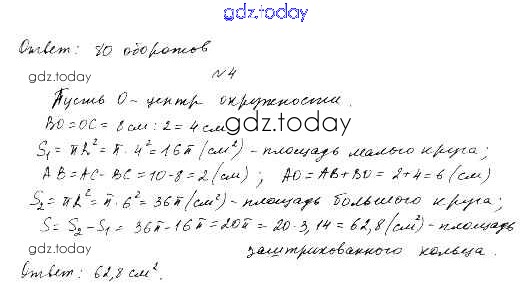 gdz.today
Ответ: 80 оборотов
gdz.today
№4
Пусть O - центр окружности.
BO=OC=8см:2=4см
gdz.today
S₁=πR²=π·4²=16π(см²) - площадь малого круга;
AB=AC-BC=10-8=2(см); AO=AB+BO=2+4=6(см)
S₂=πR²=π·6²=36π(см²) - площадь большого круга;
S=S₂-S₁=36π-16π=20π=20·3,14=62,8(см²) - площадь
gdz.today
заштрихованного кольца.
Ответ: 62,8см².
gdz.today